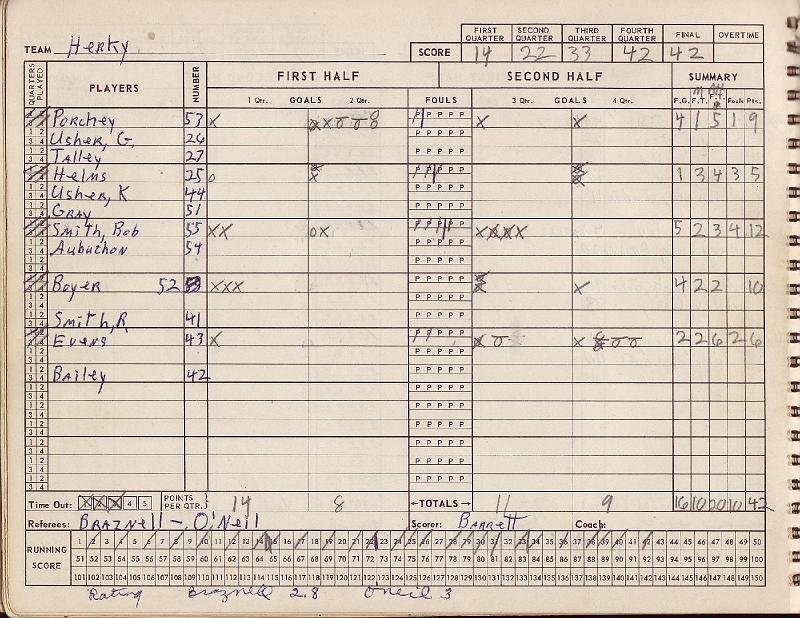 FIRST QUARTER SECOND QUARTER THIRD QUARTER FOURTH QUARTER FINAL OVERTIME
TEAM Herky
SCORE 14 22 33 42 42
QUARTERS PLAYED PLAYERS NUMBER FIRST HALF SECOND HALF SUMMARY
1 Qtr. GOALS 2 Qtr. FOULS 3 Qtr. GOALS 4 Qtr. F.G. F.T. Fouls Pts.
Porchey 53 4 1 5 1 9
Usher, G. 26
Talley 27
Helms 25 1 3 4 3 5
Usher, K 44
Gray 51
Smith, Rob 55 5 2 3 4 12
Aubuchon 54
Boyer 52 4 2 2 10
Smith, R 41
Evens 43 2 2 6 2 6
Bailey 42
Time Out: 1 2 3 4 5 POINTS PER QTR. 14 8 ←TOTALS→ 11 9 16 10 20 10 42
Referees: Braznell - O'Neil Scorer: Barrett Coach:
1 2 3 4 5 6 7 8 9 10 11 12 13 14 15 16 17 18 19 20 21 22 23 24 25 26 27 28 29 30 31 32 33 34 35 36 37 38 39 40 41 42 43 44 45 46 47 48 49 50
RUNNING SCORE 51 52 53 54 55 56 57 58 59 60 61 62 63 64 65 66 67 68 69 70 71 72 73 74 75 76 77 78 79 80 81 82 83 84 85 86 87 88 89 90 91 92 93 94 95 96 97 98 99 100
101 102 103 104 105 106 107 108 109 110 111 112 113 114 115 116 117 118 119 120 121 122 123 124 125 126 127 128 129 130 131 132 133 134 135 136 137 138 139 140 141 142 143 144 145 146 147 148 149 150
Rating Braznell 2.8 O'neil 3